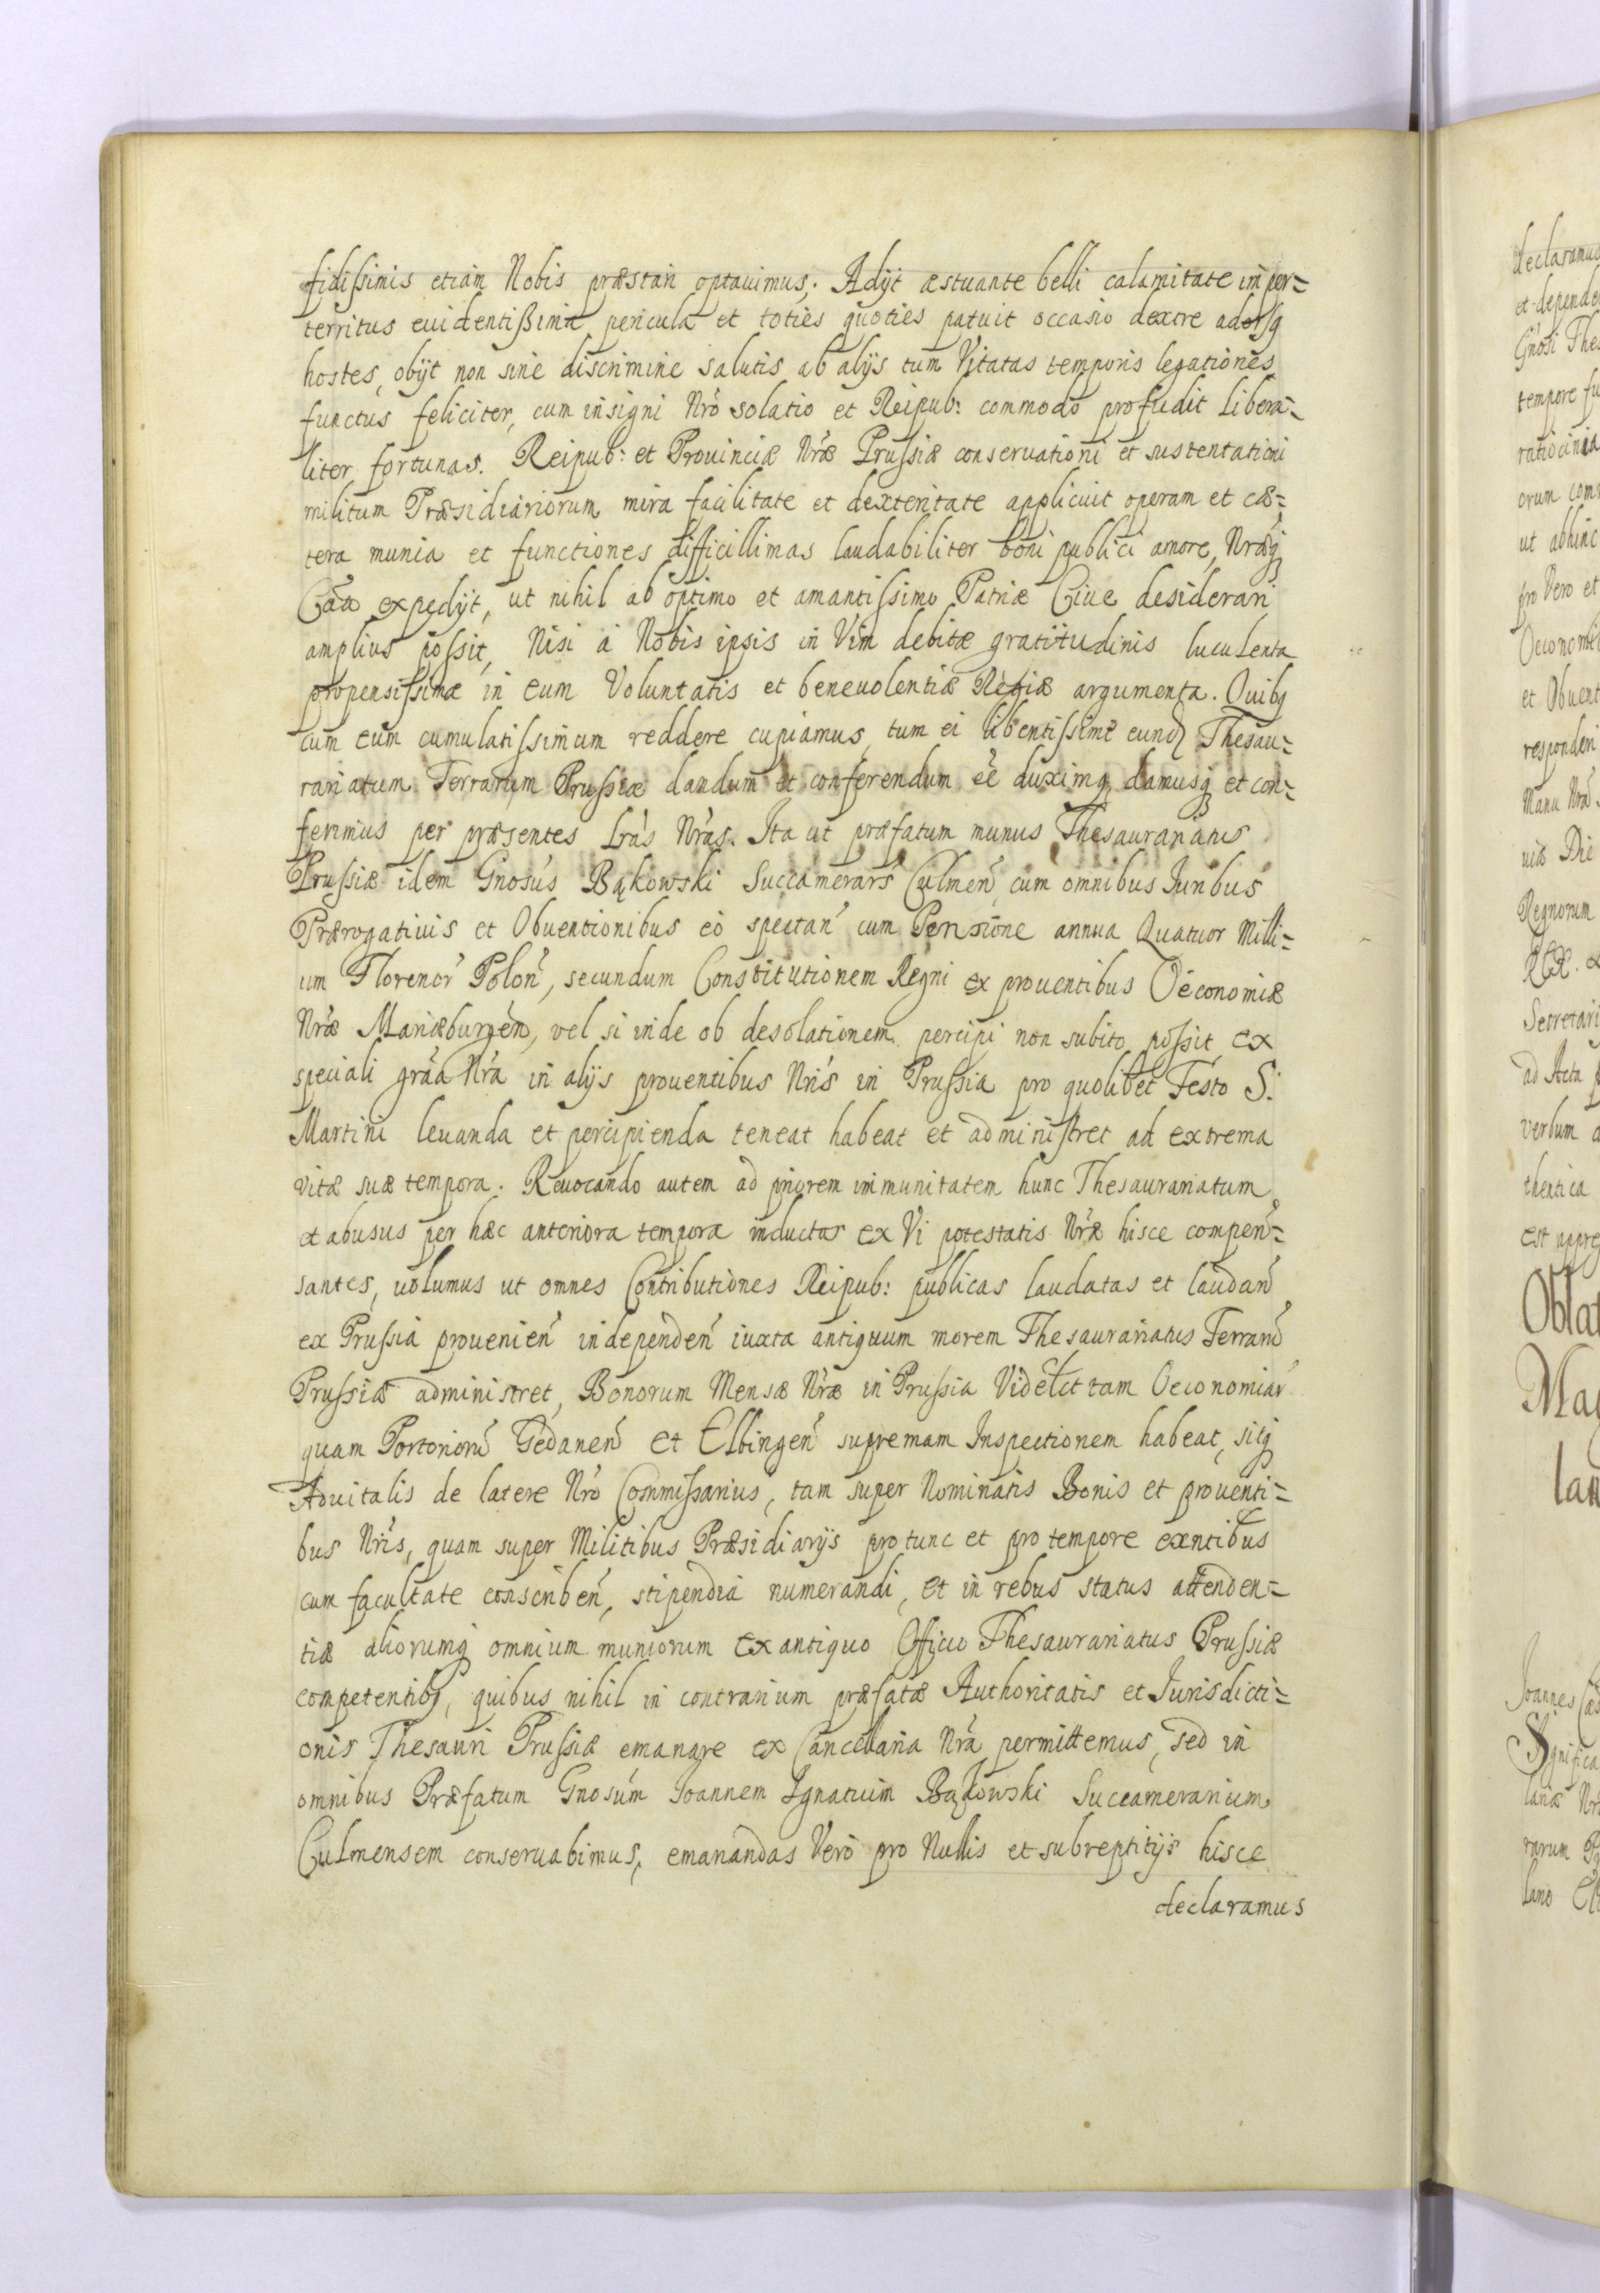 fidissimis etiam Nobis præstari optauimus. Adijt æstuante belli calamitate imper=
territus euidentißima pericula et toties quoties patuit occasio dextre adorsq
hostes, obijt non sine discrimine salutis ab alijs tum Vitatas temporis legationes
functus feliciter, cum insigni Nr̃o solatio et Reipub: commodo profudit libera=
liter fortunas. Reipub: et Prouinciæ Nr̃æ Prussiæ conseruationi et sustentationi
militum Præsidiariorum mira facilitate et dexteritate applicuit operam et cæ=
tera munia et functiones difficillimas laudabiliter boni publici amore, Nr̃ãq
Cãa expedijt, ut nihil ab optimo et amantissimo Patriæ Ciue desiderari
amplius possit, Nisi à Nobis ipsis in Vim debitæ gratitudinis luculenta
propensissimæ in eum Voluntatis et beneuolentiæ Regiæ argumenta. Quibq
cum eum cumulatissimum reddere cupiamus, tum ei libentissimè eund Thesau=
rariatum Terrarum Prussiæ dandum et conferendum eẽ duximq, damusq et con=
ferimus per præsentes Lr̃as Nr̃as. Ita ut præfatum munus Thesaurariatus
Prussiæ idem Gnosus Bąkowski Succamerar̃s Culmeñ, cum omnibus Iuribus
Prærogatiuis et Obuentionibus eò spectañ cum Pensione annua Quatuor Milli=
um Florenor̃ Poloñ, secundum Constitutionem Regni ex prouentibus Oeconomiæ
Nr̃æ Mariæburgeñ, vel si inde ob desolationem percipi non subito possit, ex
speciali gr̃ãa Nr̃a in alijs prouentibus Nr̃is in Prussia pro quolibet Festo S.
Martini leuanda et percipienda teneat habeat et administret ad extrema
vitæ suæ tempora. Reuocando autem ad priorem immunitatem hunc Thesaurariatum
et abusus per hæc anteriora tempora inductos ex Vi potestatis Nr̃æ hisce compen=
santes, uolumus ut omnes Contributiones Reipub: publicas laudatas et laudañ
ex Prussia prouenieñ independeñ iuxta antiquum morem Thesaurariatus Terrarũ
Prussiæ administret, Bonorum Mensæ Nr̃æ in Prussia Videlꝫt tam Oeconomiar̃
quam Portoriorũ Gedaneñ et Elbingeñ supremam Inspectionem habeat, sitq
Aduitalis de latere Nr̃o Commissarius, tam super Nominatis Bonis et prouenti=
bus Nr̃is, quam super Militibus Præsidiarijs pro tunc et pro tempore exntibus
cum facultate conscribeñ, stipendia numerandi, et in rebus status attenden=
tiæ aliorumq omnium muniorum ex antiquo Officio Thesaurariatus Prussiæ
competentibq, quibus nihil in contrarium præfatæ Authoritatis et Iurisdicti=
onis Thesauri Prussiæ emanare ex Cancellaria Nr̃a permittemus, sed in
omnibus Præfatum Gnosum Ioannem Ignatium Bąkowski Succamerarium
Culmensem conseruabimus, emanandas Verò pro Nullis et subreptitijs hisce
declaramus